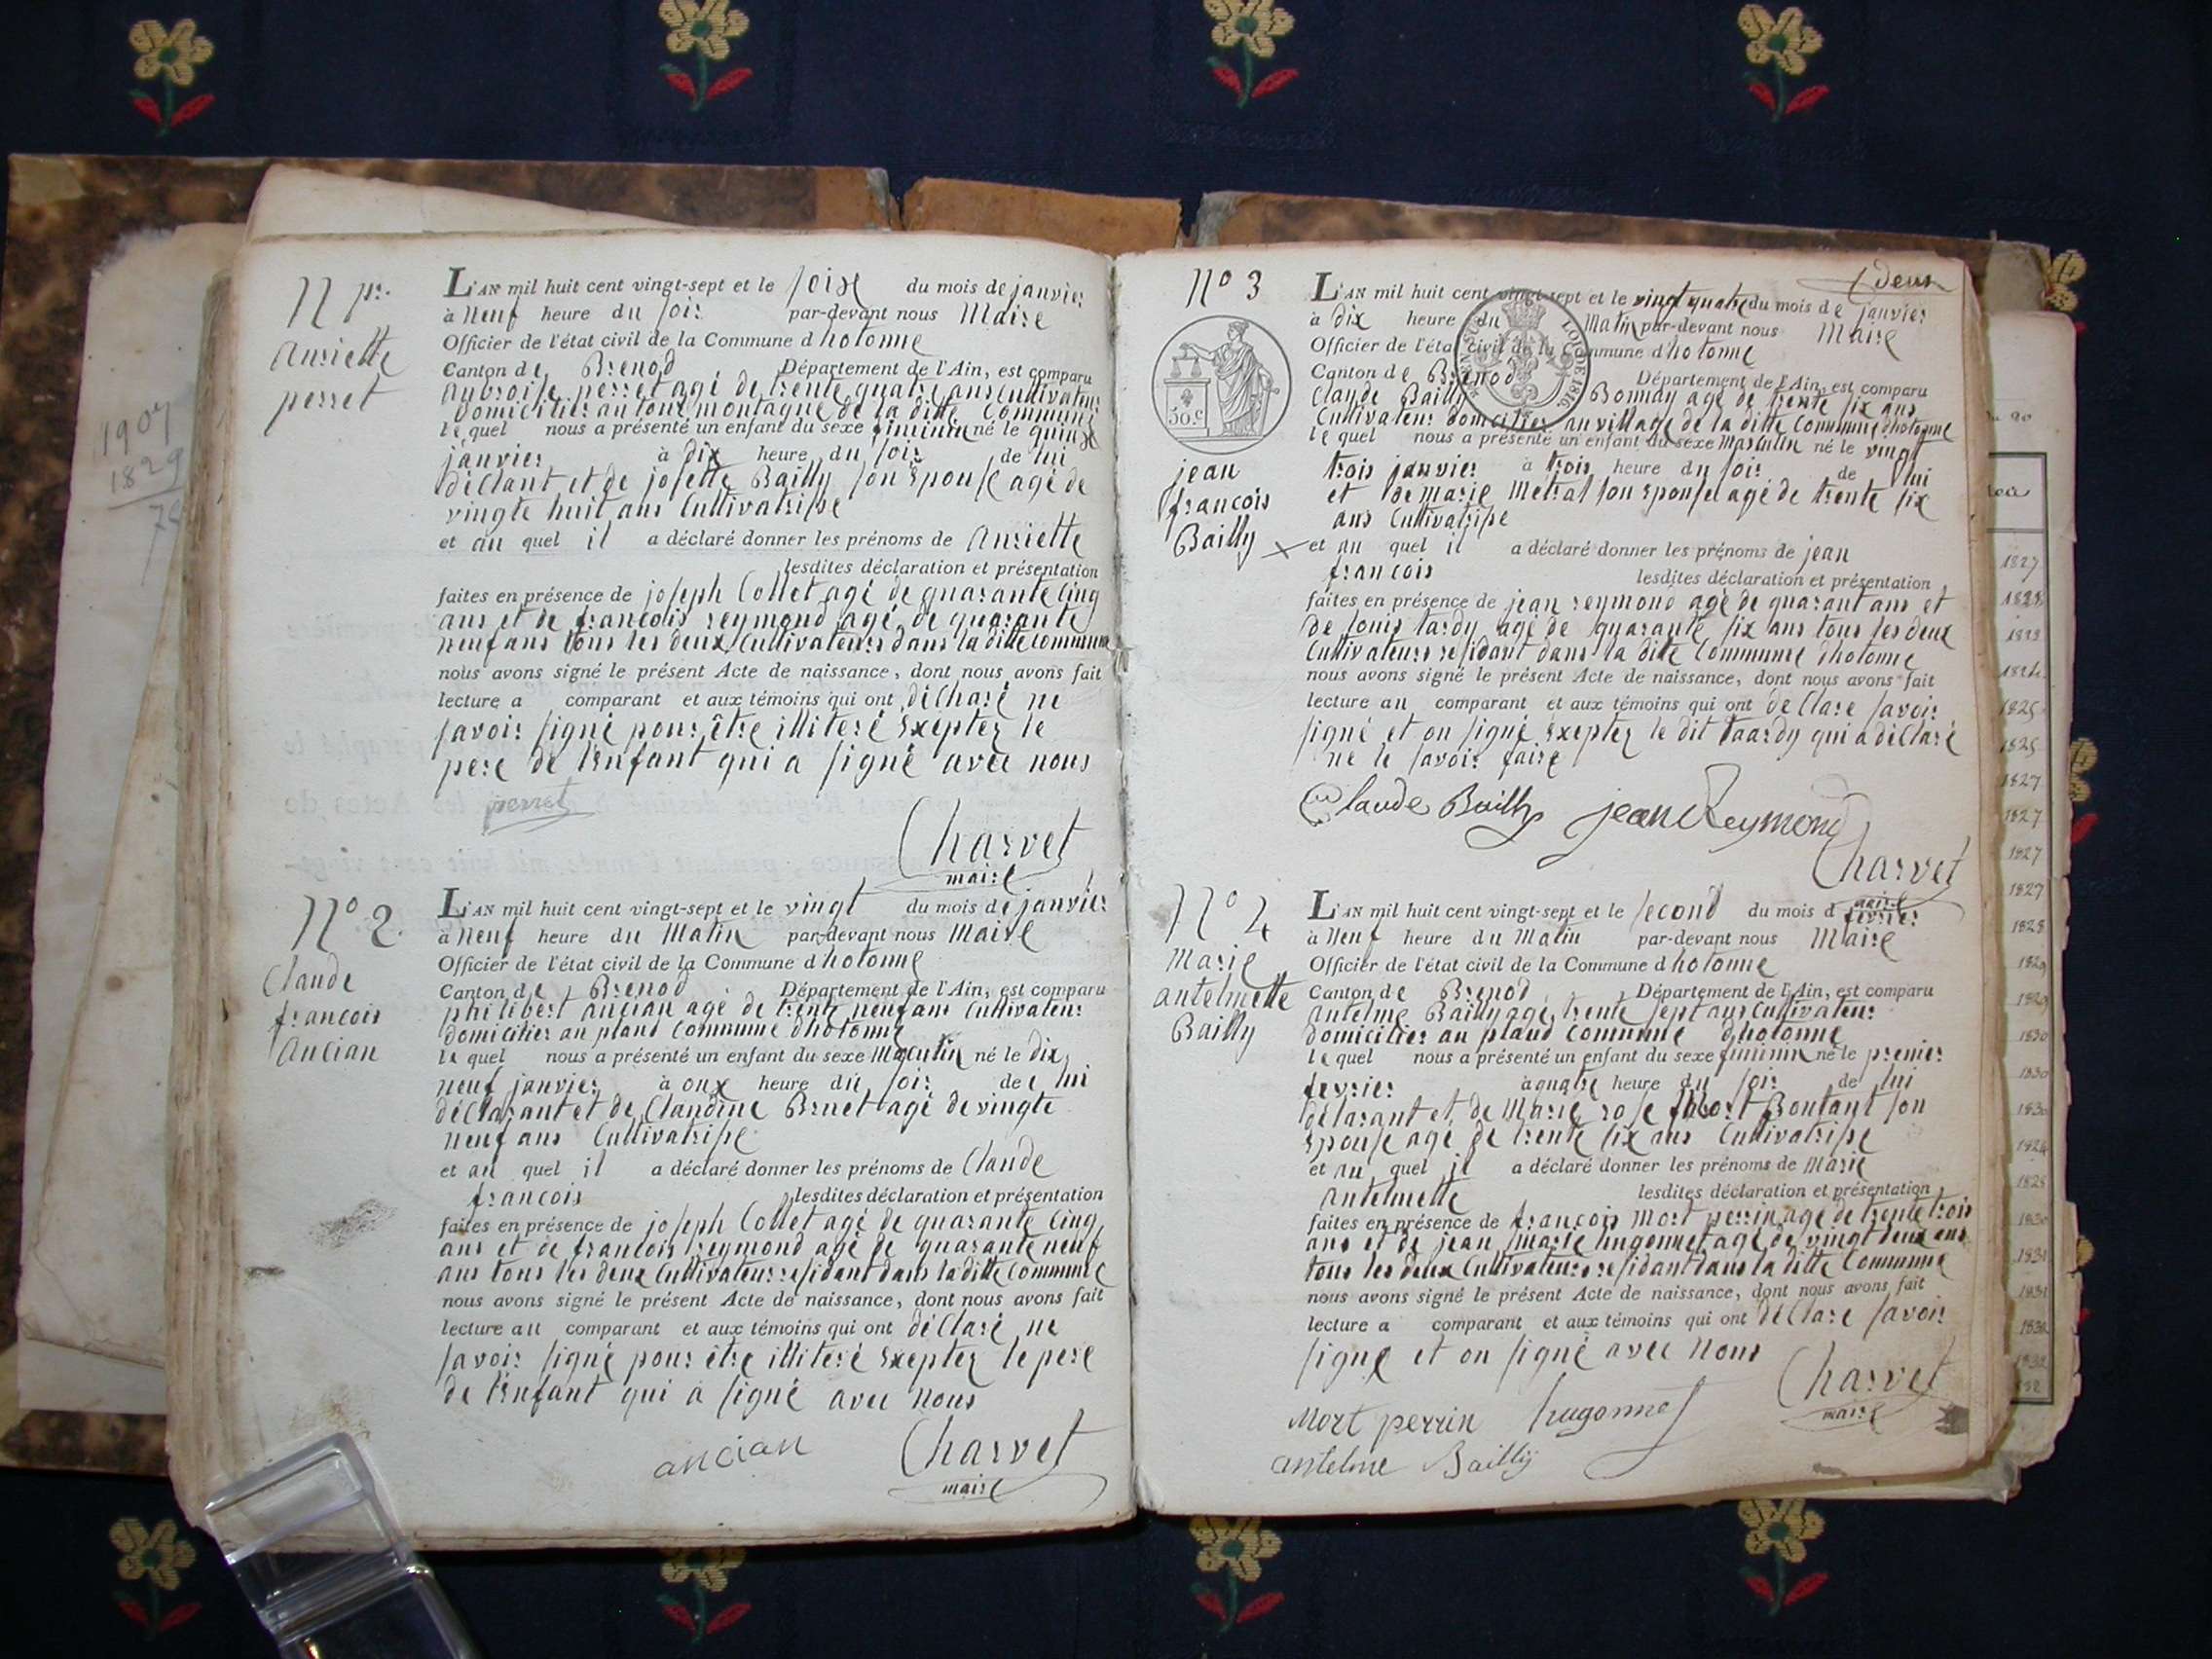 1907
1829
78
N pr.
anriette
perret
L'AN mil huit cent vingt-sept et le soise du mois de janvier
à neuf heure du soir par-devant nous Maire
Officier de l'état civil de la Commune d'hotonne
Canton de Brenod Département de l'Ain, est comparu
anbroise perret agé de trente quatre ans Cultivateur
domicilier au tour montagne de la ditte Commune
le quel nous a présenté un enfant du sexe feminin né le quinse
janvier à dix heure du soir de lui
déclant et de josette Bailly son Epouse agé de
vingte huit ans Cultivatrisse
et au quel il a déclaré donner les prénoms de anriette
lesdites déclaration et présentation
faites en présence de joseph Collet agé de quarante Cinq
ans et de francois reymond agé de quarante
neuf ans tous les deux Cultivateurs dans la ditte Commune
nous avons signé le présent Acte de naissance, dont nous avons fait
lecture a comparant et aux témoins qui ont déCharé ne
savoir signé pour être illiteré Exepter le
pere de l'Enfant qui a signé avec nous
perret
Charvet
maire
N° 2.
Claude
francois
ancian
L'AN mil huit cent vingt-sept et le vingt du mois de janvier
à neuf heure du Matin par-devant nous Maire
Officier de l'état civil de la Commune d'hotonne
Canton de Brenod Département de l'Ain, est comparu
philibert ancian agé de trente neuf ans Cultivateur
domicilier au pland Commune d'hotonne
le quel nous a présenté un enfant du sexe Masculin né le dix
neuf janvier à onx heure du soir de lui
déClarant et de Claudine Brunet agé de vingte
neuf ans Cultivatrisse
et au quel il a déclaré donner les prénoms de Claude
francois lesdites déclaration et présentation
faites en présence de joseph Collet agé de quarante Cinq
ans et de francois reymond agé de quarante neuf
ans tous les deux Cultivateurs residant dans la ditte Commune
nous avons signé le présent Acte de naissance, dont nous avons fait
lecture au comparant et aux témoins qui ont déClaré ne
savoir signé pour être illiteré Exepter le pere
de l'Enfant qui a signé avec nous
ancian
Charvet
maire
deux
N° 3
50.c
LOI DE 1816
jean
francois
Bailly
L'AN mil huit cent vingt-sept et le vingt quatre du mois de janvier
à dix heure du Matin par-devant nous Maire
Officier de l'état civil de la Commune d'hotonne
Canton de Brenod Département de l'Ain, est comparu
Claude Bailly Bonnay agé de trente six ans
Cultivateur domicilier au village de la ditte Commune d'hotonne
le quel nous a présenté un enfant du sexe Masculin né le vingt
trois janvier à trois heure du soir de lui
et de marie Metral son Epouse agé de trente six
ans Cultivatrisse
et au quel il a déclaré donner les prénoms de jean
francois lesdites déclaration et présentation
faites en présence de jean reymond agé de quarant ans et
de louis tardy agé de quarante six ans tous les deux
Cultivateurs residant dans la ditte Commune d'hotonne
nous avons signé le présent Acte de naissance, dont nous avons fait
lecture au comparant et aux témoins qui ont déClare savoir
signé et on signé Exepter le dit taardy qui a déClaré
ne le savoir faire
Claude Bailly jean Reymond
Charvet
maire
N° 4
Marie
antelmette
Bailly
L'AN mil huit cent vingt-sept et le second du mois d fevrier
à neuf heure du Matin par-devant nous Maire
Officier de l'état civil de la Commune d'hotonne
Canton de Brenod Département de l'Ain, est comparu
antelme Bailly agé trente sept ans Cultivateur
domicilier au pland Commune d'hotonne
le quel nous a présenté un enfant du sexe feminin né le premier
fevrier à quatre heure du soir de lui
délarant et de Marie rose Mort Bontant son
Epouse agé de trente six ans Cultivatrisse
et au quel il a déclaré donner les prénoms de Marie
antelmette lesdites déclaration et présentation
faites en présence de francois Mort perrin agé de trente trois
ans et de jean marie hugonnet agé de vingt deux ans
tous les deux Cultivateurs residant dans la ditte Commune
nous avons signé le présent Acte de naissance, dont nous avons fait
lecture a comparant et aux témoins qui ont déClare savoir
signé et on signé avec nous
Charvet
maire
Mort perrin hugonnet
antelme Bailly
1827
1828
1828
1824
1825
1825
1827
1827
1827
1827
1828
1829
1829
1830
1830
1830
1824
1825
1830
1831
1831
1832
1832